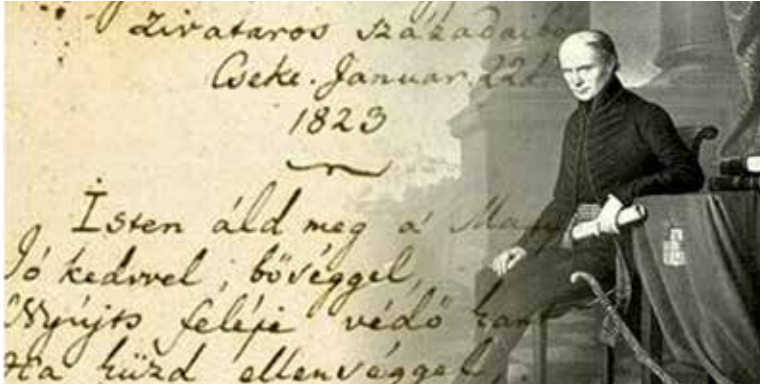 Zivataros századaiból
Cseke. Januar. 22d.
1823
Isten áld meg a' Magy
Jó kedvvel, bőséggel,
Nyújts feléje védő kart
Ha küzd ellenséggel,